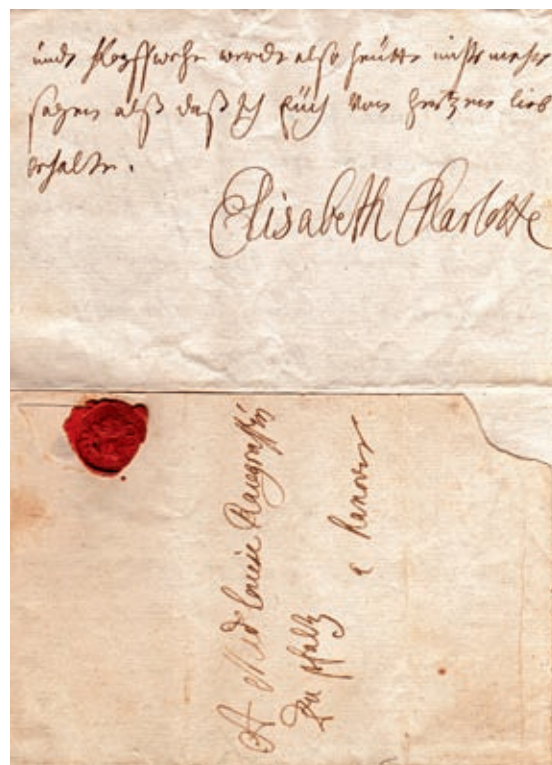 undt Kopffwehe werde also heütte nichts mehr
sagen alß daß Ich Eüch von hertzen lieb
behalte.
Elisabeth Charlotte
A Md Louise Raugraffin
Zu pfaltz
a hanover